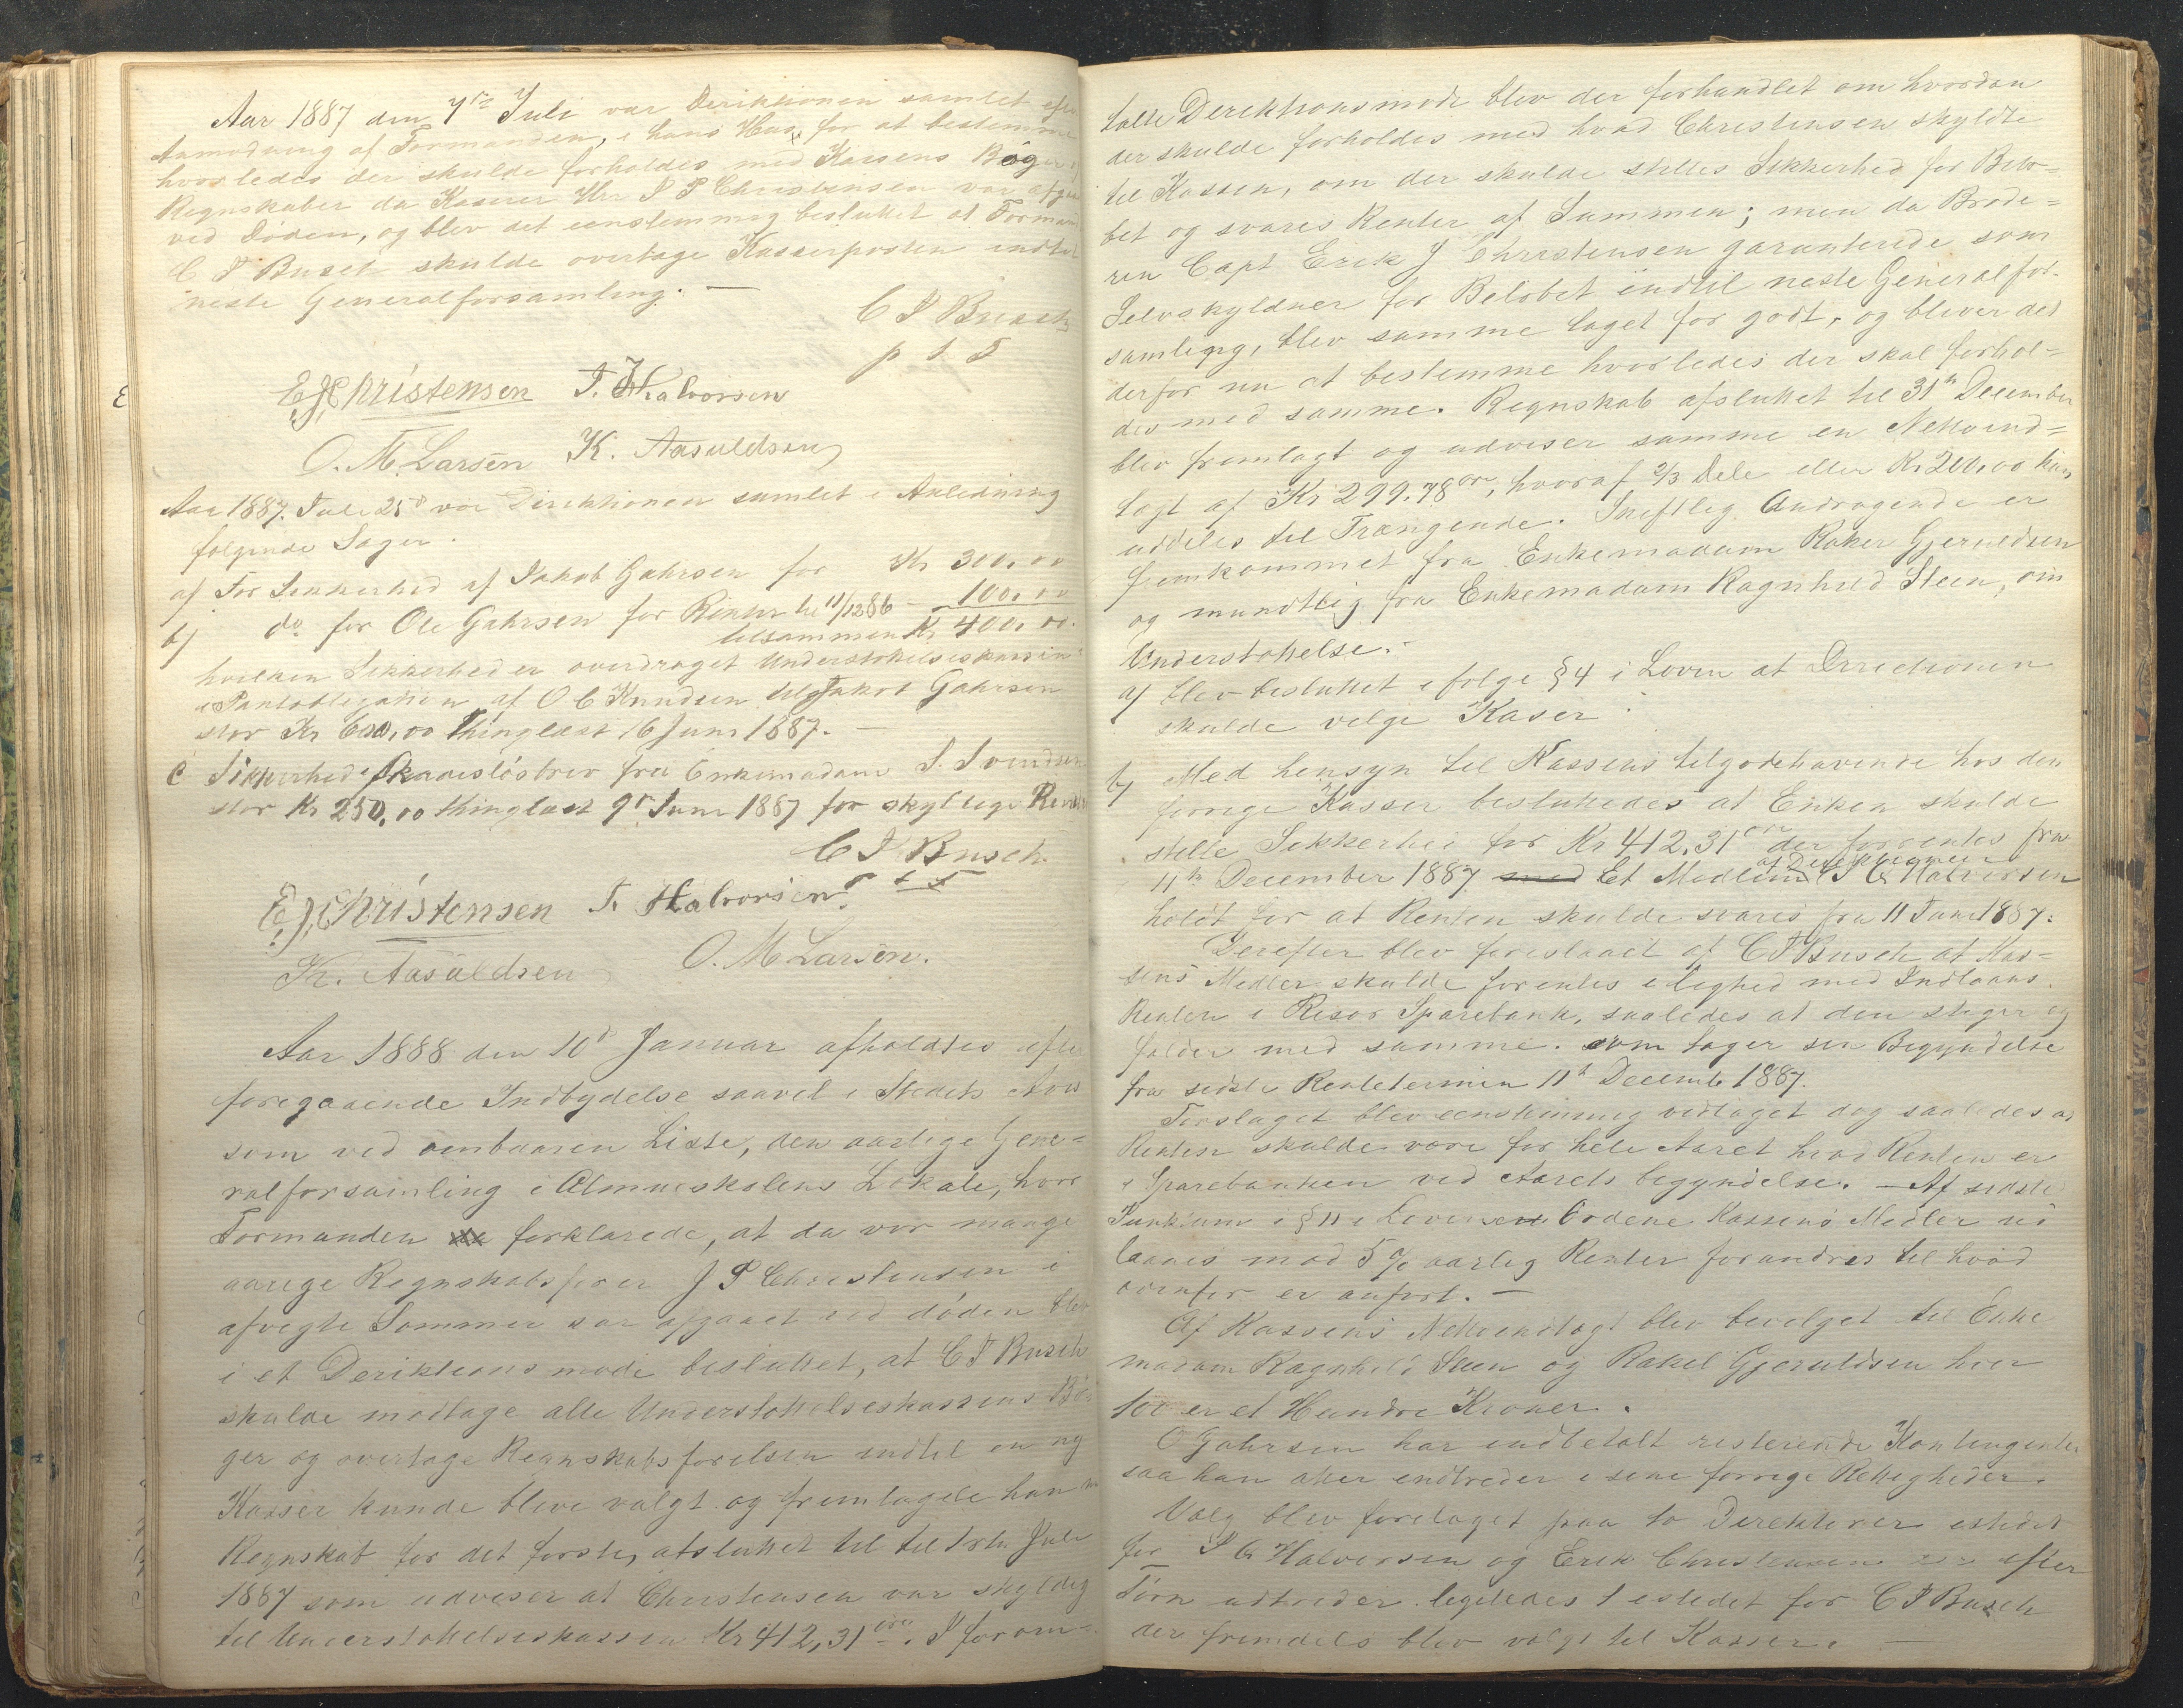 Aar 1887 den 7de Juli var Deriktionen samlet efter
Anmodning af Formanden, i hans Hus for at bestemme
hvorledes der skulde forholdes med Kassens Bøger
Regnskaber da Kaserer Hrr J P Christensen var afgaa
ved Døden, og blev det eenstemmig besluttet at Formand
C F Busch skulde overtage Kasserposten indtil
neste Generalforsamling. —
C F Busch
p t F
E J Christensen T. Halvorsen
O. M. Larsen K. Aasuldsen
Aar 1887. Juli 25d var Direktionen samlet i Anledning
følgende Sager.
a) For Sikkerhed af Jakob Gahrsen for Kr 300,00
b) do for Ole Gahrsen for Renter til 11/12 86 - 100,00
tilsammen Kr 400,00.
hvilken Sikkerhed er overdraget Understøttelseskassen
i Pantobligation af O C Knudsen til Jakob Gahrsen
stor Kr 600,00 thinglæst 16 Juni 1887. —
c Sikkerhed i Skadesløsbrev fra Enkemadam S. Svendsen
stor Kr 250,00 thinglæst 9de Juni 1887 for skyldige Renter
C F Busch
p t F
E. J. Christensen T. Halvorsen
K. Aasuldsen O. M Larsen.
Aar 1888 den 10d Januar afholdtes efter
foregaaende Indbydelse saavel i Stedets Avis
som ved ombaaren Liste, den aarlige Gene=
ralforsamling i Almueskolens Lokale, hvor
Formanden forklarede, at da vor mange
aarige Regnskabsfører J P Christensen i
afvegte Sommer var afgaaet ved døden blev
i et Deriktions møde besluttet, at C F Busch
skulde modtage alle Understøttelseskassens Bø
ger og overtage Regnskabsførelsen indtil en ny
Kasser kunde blive valgt og fremlagde han nu
Regnskab for det første, afsluttet til til 1ste Juli
1887 som udviser at Christensen var skyldig
til Understøttelseskassen Kr 412,31 øre. I forom=
talte Derektionsmøde blev der forhandlet om hvordan
der skulde forholdes med hvad Christensen skyldte
til Kassen, om der skulde stilles Sikkerhed for Belø=
bet og svares Renter af Summen; men da Brode=
ren Capt Erik J Christensen garanterede som
Selvskyldner for Beløbet indtil neste Generalfor-
samling, blev samme taget for godt, og bliver det
derfor nu at bestemme hvorledes der skal forhol=
des med samme. Regnskab afsluttet til 31te December
blev fremlagt og udviser samme en Nettoind=
tægt af Kr 299,78 øre, hvoraf 2/3 Dele eller Kr 200,00 kan
uddeles til Trængende. Skriftlig Andragende er
fremkommet fra Enkemadam Rakel Gjeruldsen
og mundtlig fra Enkemadam Ragnhild Steen, om
Understøttelse.
a) blev besluttet ifølge §4 i Loven at Direktionen
skulde velge Kaser.
b) Med hensyn til Kassens tilgodehavende hos den
forrige Kasser besluttedes at Enken skulde
stille Sikkerhed for Kr 412,31 øre der forrentes fra
11te December 1887 med Et Medlem af Direktionen T G Halvorsen
holdt for at Renten skulde svares fra 11 Juni 1887.
Derefter blev foreslaaet af C F Busch at Kas=
sens Midler skulde forrentes i lighed med Indlaans
Renten i Risør Sparebank, saaledes at den stiger og
falder med samme. som tager sin Begyndelse
fra sidste Rentetermin 11te Decemb 1887.
Forslaget blev eenstemmig vedtaget dog saaledes at
Renten skulde være for hele Aaret hvad Renten er
i Sparebanken ved Aarets begyndelse. — Af sidste
Punktum i §11 i Loven Ordene Kassens Midler ud
laanes mod 5 % aarlig Renter forandres til hvad
ovenfor er anført. —
Af Kassens Nettoindtægt blev bevilget til Enke
madam Ragnhild Steen og Rakel Gjeruldsen hver
100 er et Hundre Kroner.
O Gahrsen har indbetalt resterende Kontingenter
saa han atter indtreder i sine forrige Rettigheder.
Valg blev foretaget paa to Direktører istedet
for T G Halvorsen og Erik Christensen efter
Tørn udtreder. ligeledes 1 istedet for C F Busch
der fremdeles blev valgt til Kasser. —